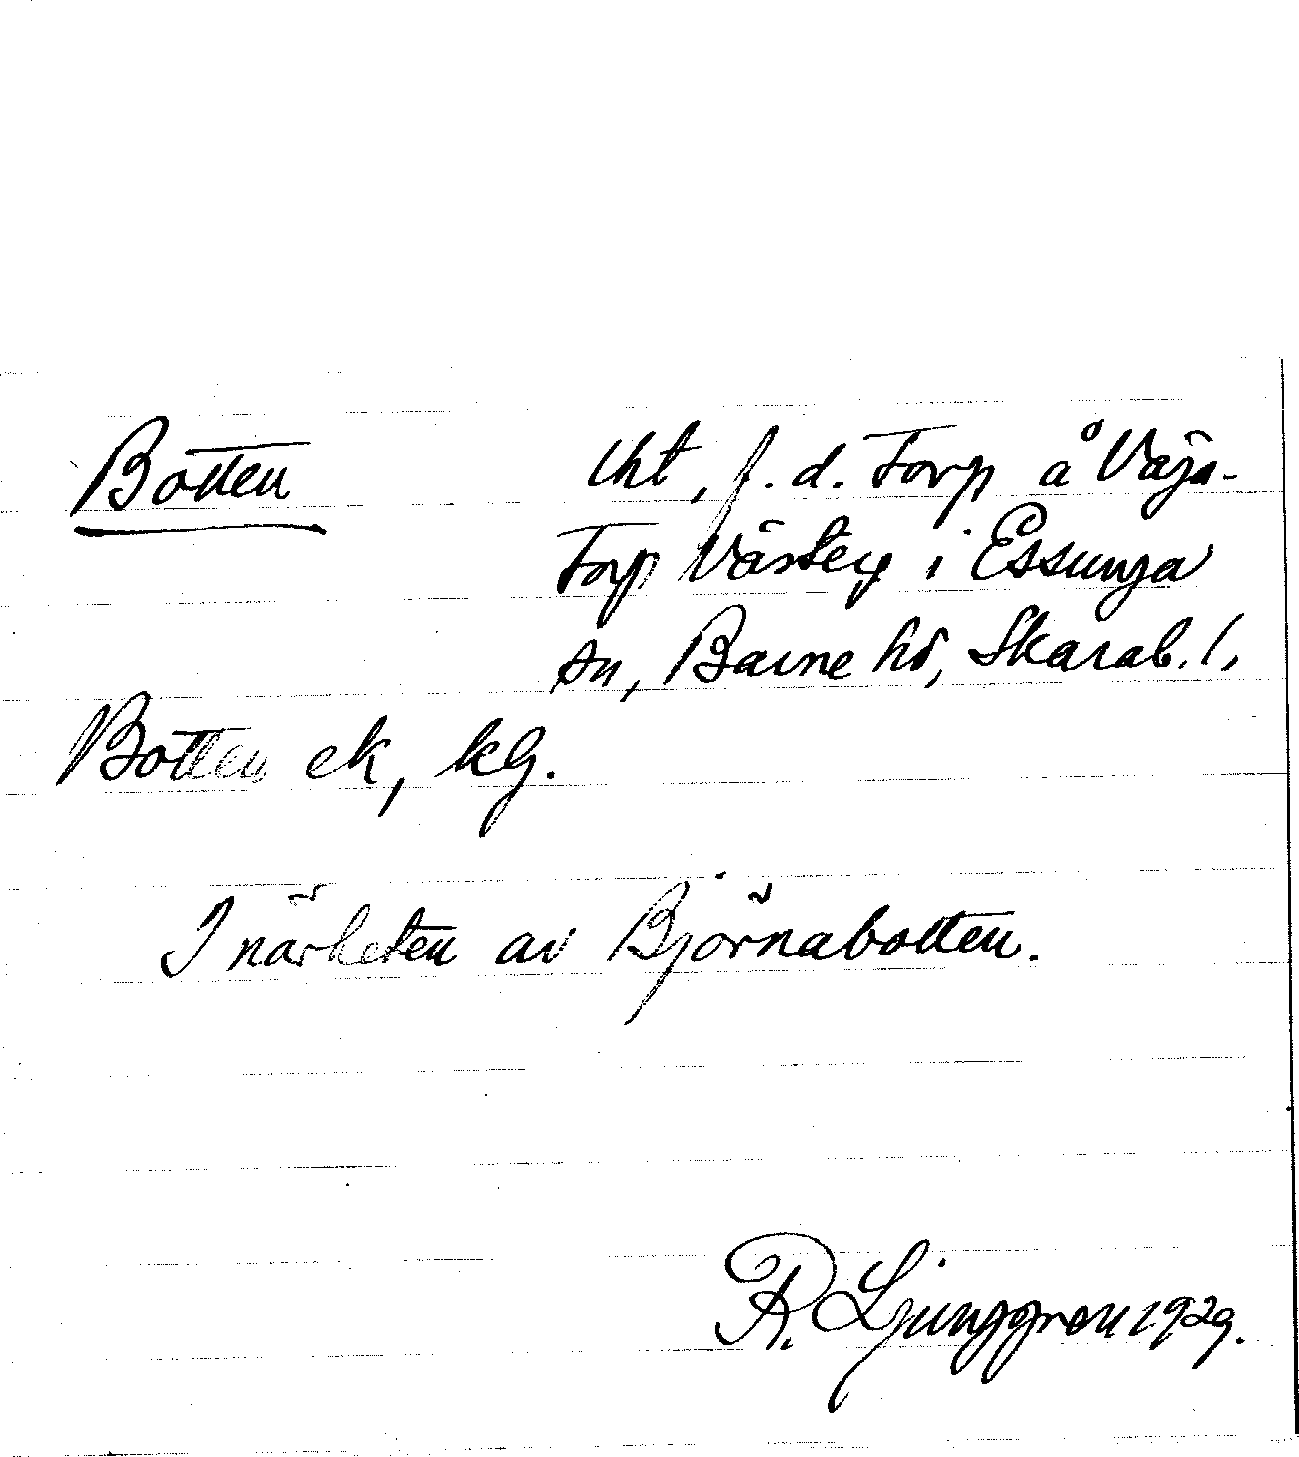 Botten lht, f. d. Torp å Väja-
torp Västerg i Essunga
sn, Barne hd, Skarab. l,
Botten ek, kg.
I närheten av Björnabotten.
R. Ljunggren 1929.